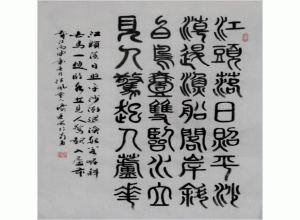 江頭落日照平沙
潮退漁船閣岸斜
白鳥壹雙臨水立
見人驚起入蘆華
江頭落日照平沙潮退漁船閣岸斜
白鳥一雙臨水立見人驚起入蘆花